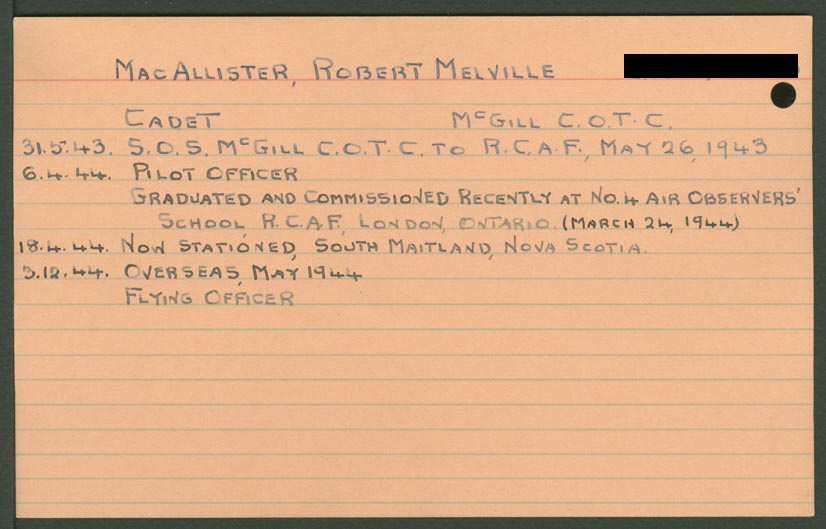 MacALLISTER, ROBERT MELVILLE
CADET McGILL C.O.T.C.
31.5.43. S.O.S. McGILL C.O.T.C. TO R.C.A.F., MAY 26, 1943
6.4.44. PILOT OFFICER
GRADUATED AND COMMISSIONED RECENTLY AT NO. 4 AIR OBSERVERS'
SCHOOL, R.C.A.F., LONDON, ONTARIO. (MARCH 24, 1944)
18.4.44. NOW STATIONED, SOUTH MAITLAND, NOVA SCOTIA.
3.12.44. OVERSEAS, MAY 1944
FLYING OFFICER